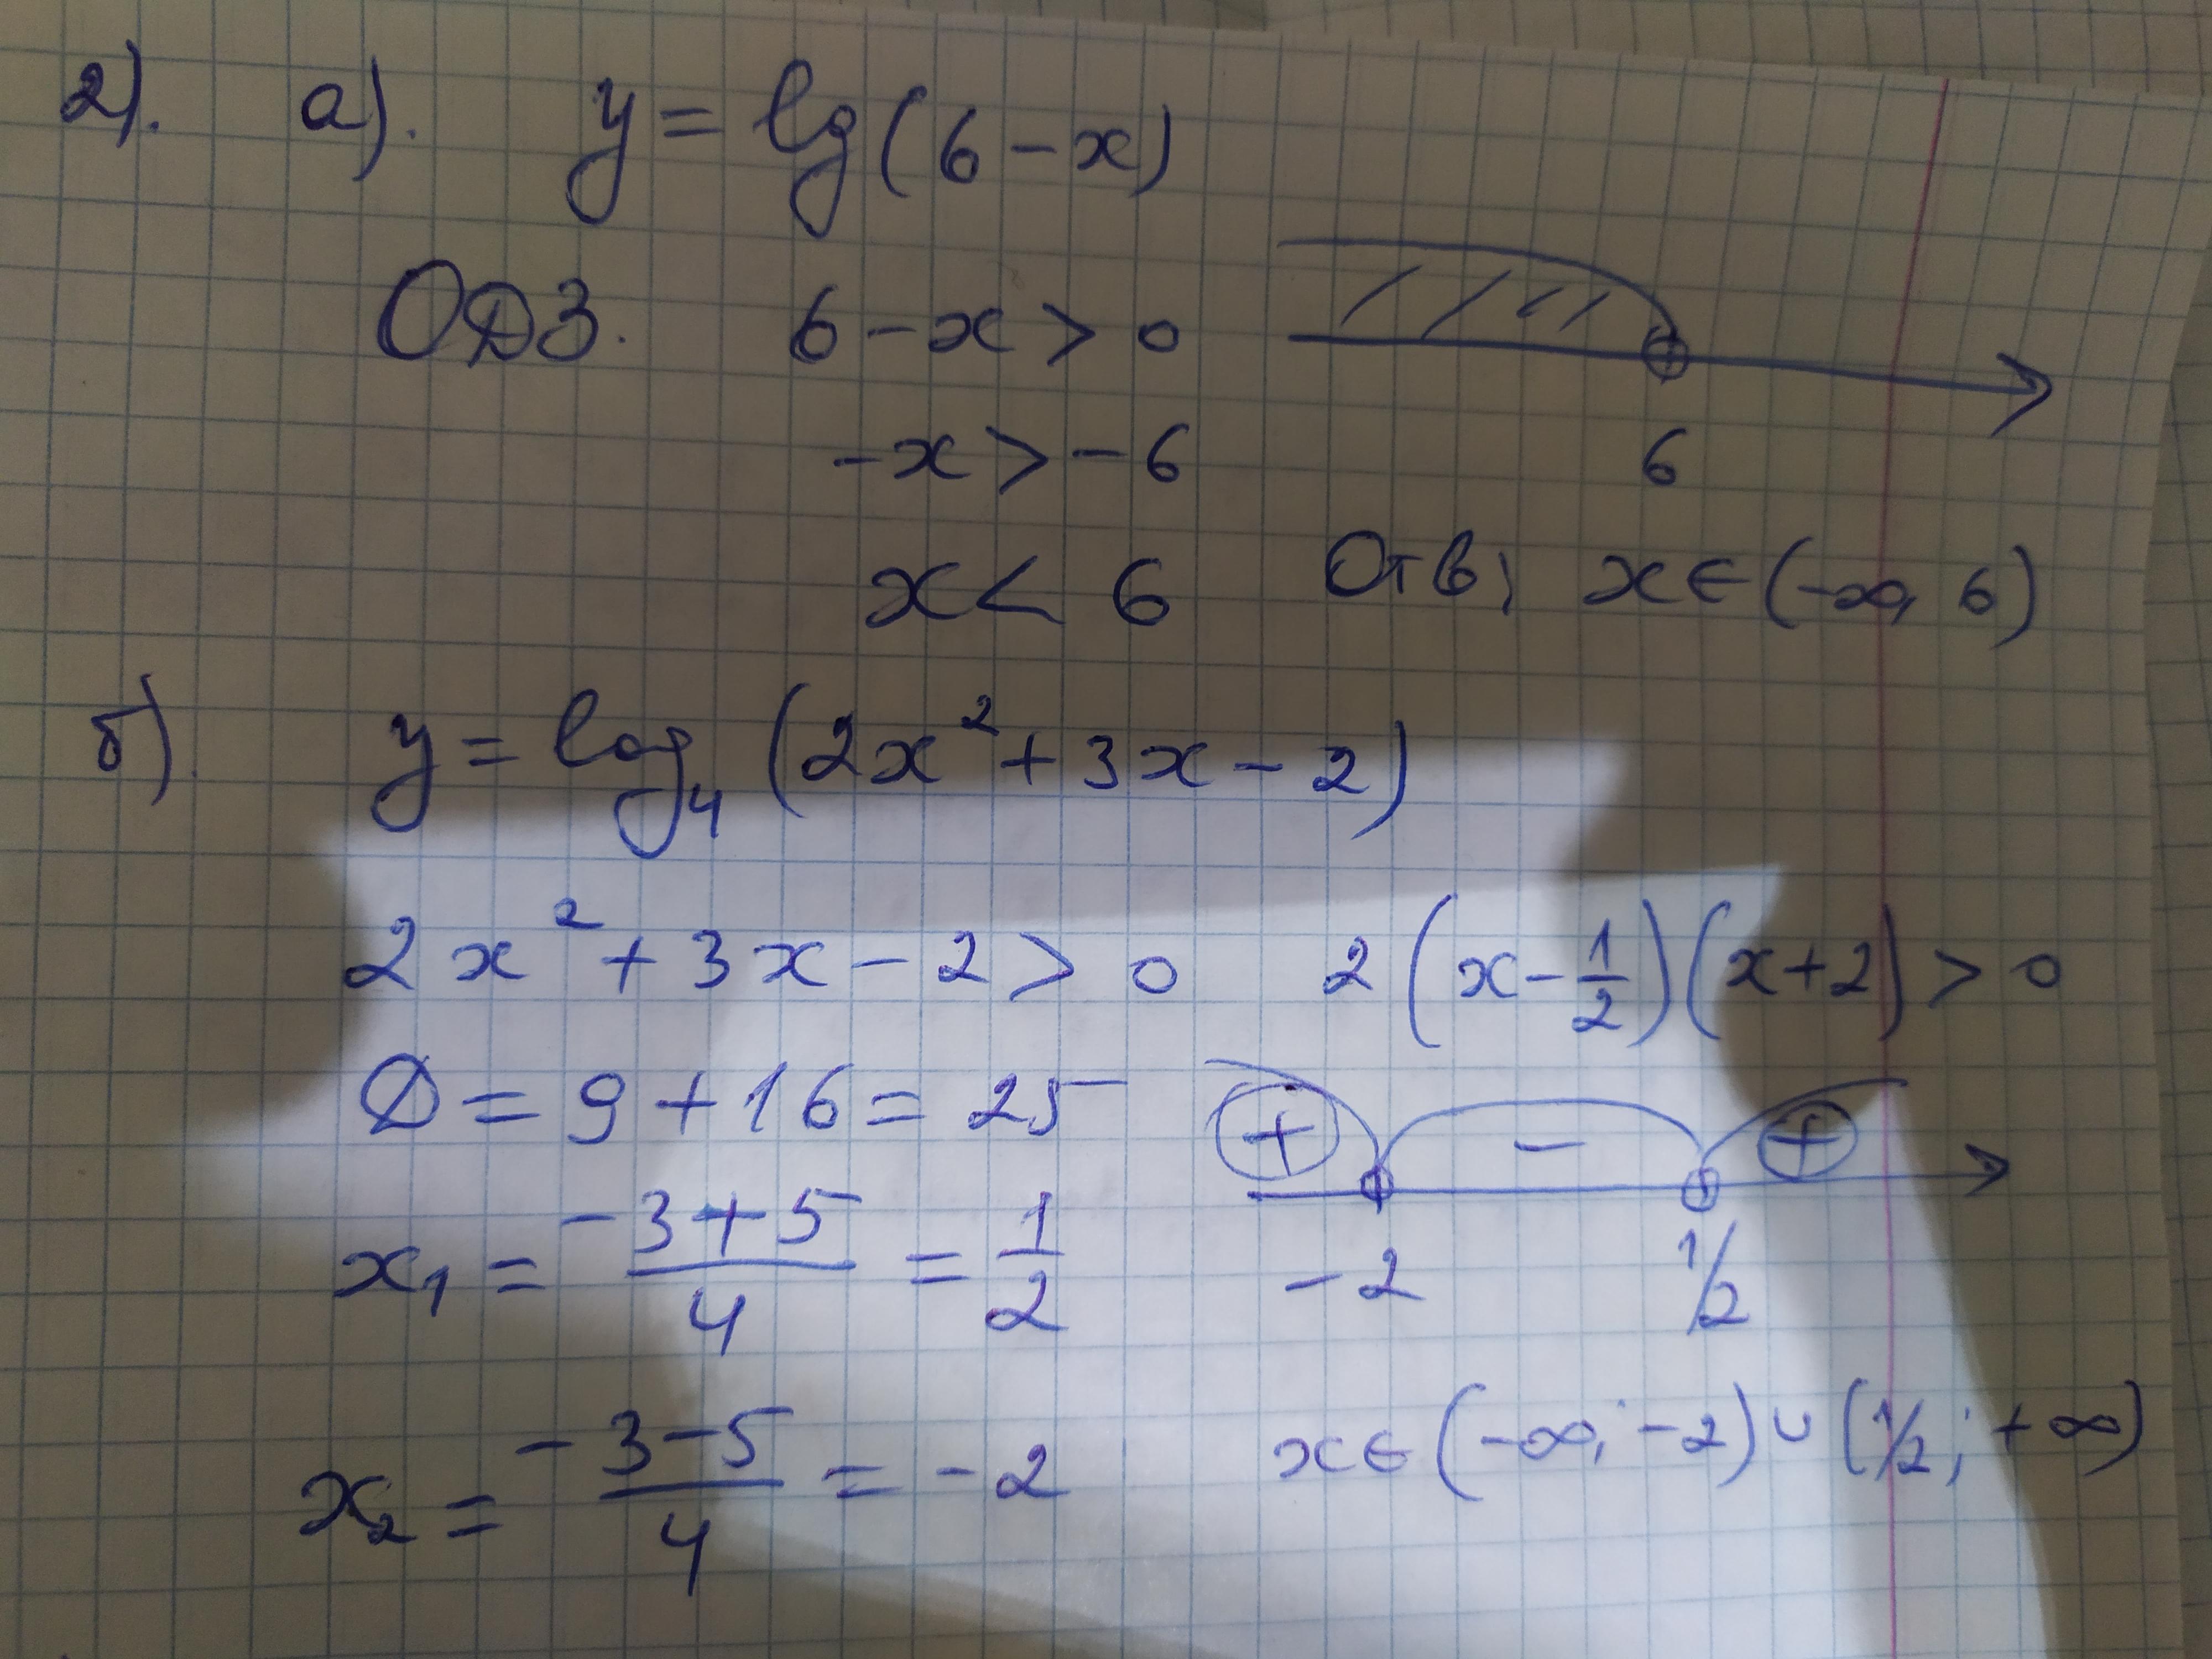 2). а). y = lg(6-x)
ОДЗ. 6-x > 0
-x > -6
6
x < 6 Отв; x ∈ (-∞, 6)
б). y = log₄ (2x² + 3x - 2)
2x² + 3x - 2 > 0 2(x - 1/2)(x+2) > 0
D = 9 + 16 = 25
+ - +
x₁ = (-3+5)/4 = 1/2
-2 1/2
x₂ = (-3-5)/4 = -2
x ∈ (-∞; -2) ∪ (1/2; +∞)